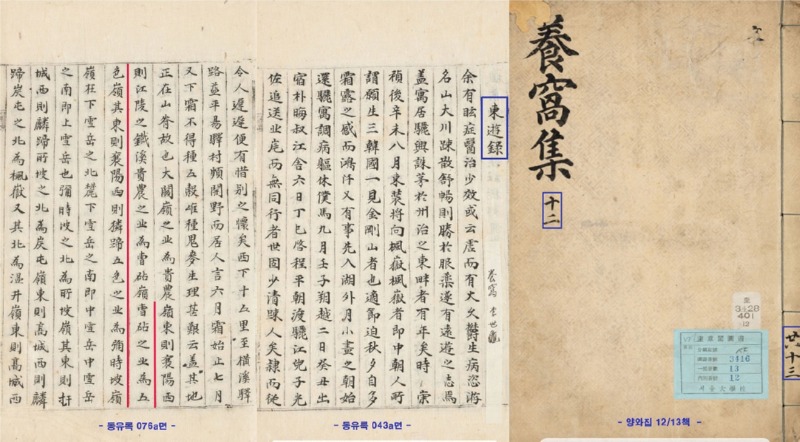 養窩集
十二
奎
3428
401
12
奎章閣圖書
3116
13
12
서울大學校
共十三
- 양와집 12/13책 -
東遊錄
養窩 李世龜
余有眩症醫治少效或云虛而有火火鬱生病恣游
名山大川疎散舒暢則勝於服藥遂有遠遊之志焉
盖寓居驪興誅茅於州治之東畔者有年矣時 崇
禎後辛未八月束裝将向楓嶽楓嶽者即中朝人所
謂願生三韓國一見金剛山者也適節迫秋夕自多
霜露之感而鴻阡又有事先入湖外月小盡之朝始
還驪寓調病軀休僕馬九月壬子朔越二日癸丑出
宿朴晦叔江舍六日丁巳啓程平朝渡驪江兜子光
佐追送业庵而無同行者世固少清踈人矣隷而從
- 동유록 043a면 -
今人遲遲便有惜别之懷矣西下十五里至橫溪驛
路益平易驛村頗開野而居人言六月霜始止七月
又下霜不得種五穀唯種鬼麥生理甚艱云盖其地
正在山脊故也大關嶺之业為貴農嶺東則襄陽西
則江陵之鐵溪貴農之业為雪岾嶺雪岾之业為五
色嶺其東則襄陽西則獜蹄五色之业為弥時坡嶺
嶺在下雪岳之北麓下雪岳之南即中雪岳中雪岳
之南即上雪岳也彌時坡之北為所坡嶺其東則杆
城西則麟蹄所坡之北為炭屯嶺東則高城西則麟
蹄炭屯之北為楓嶽又其北為温井嶺東則高城西
- 동유록 076a면 -